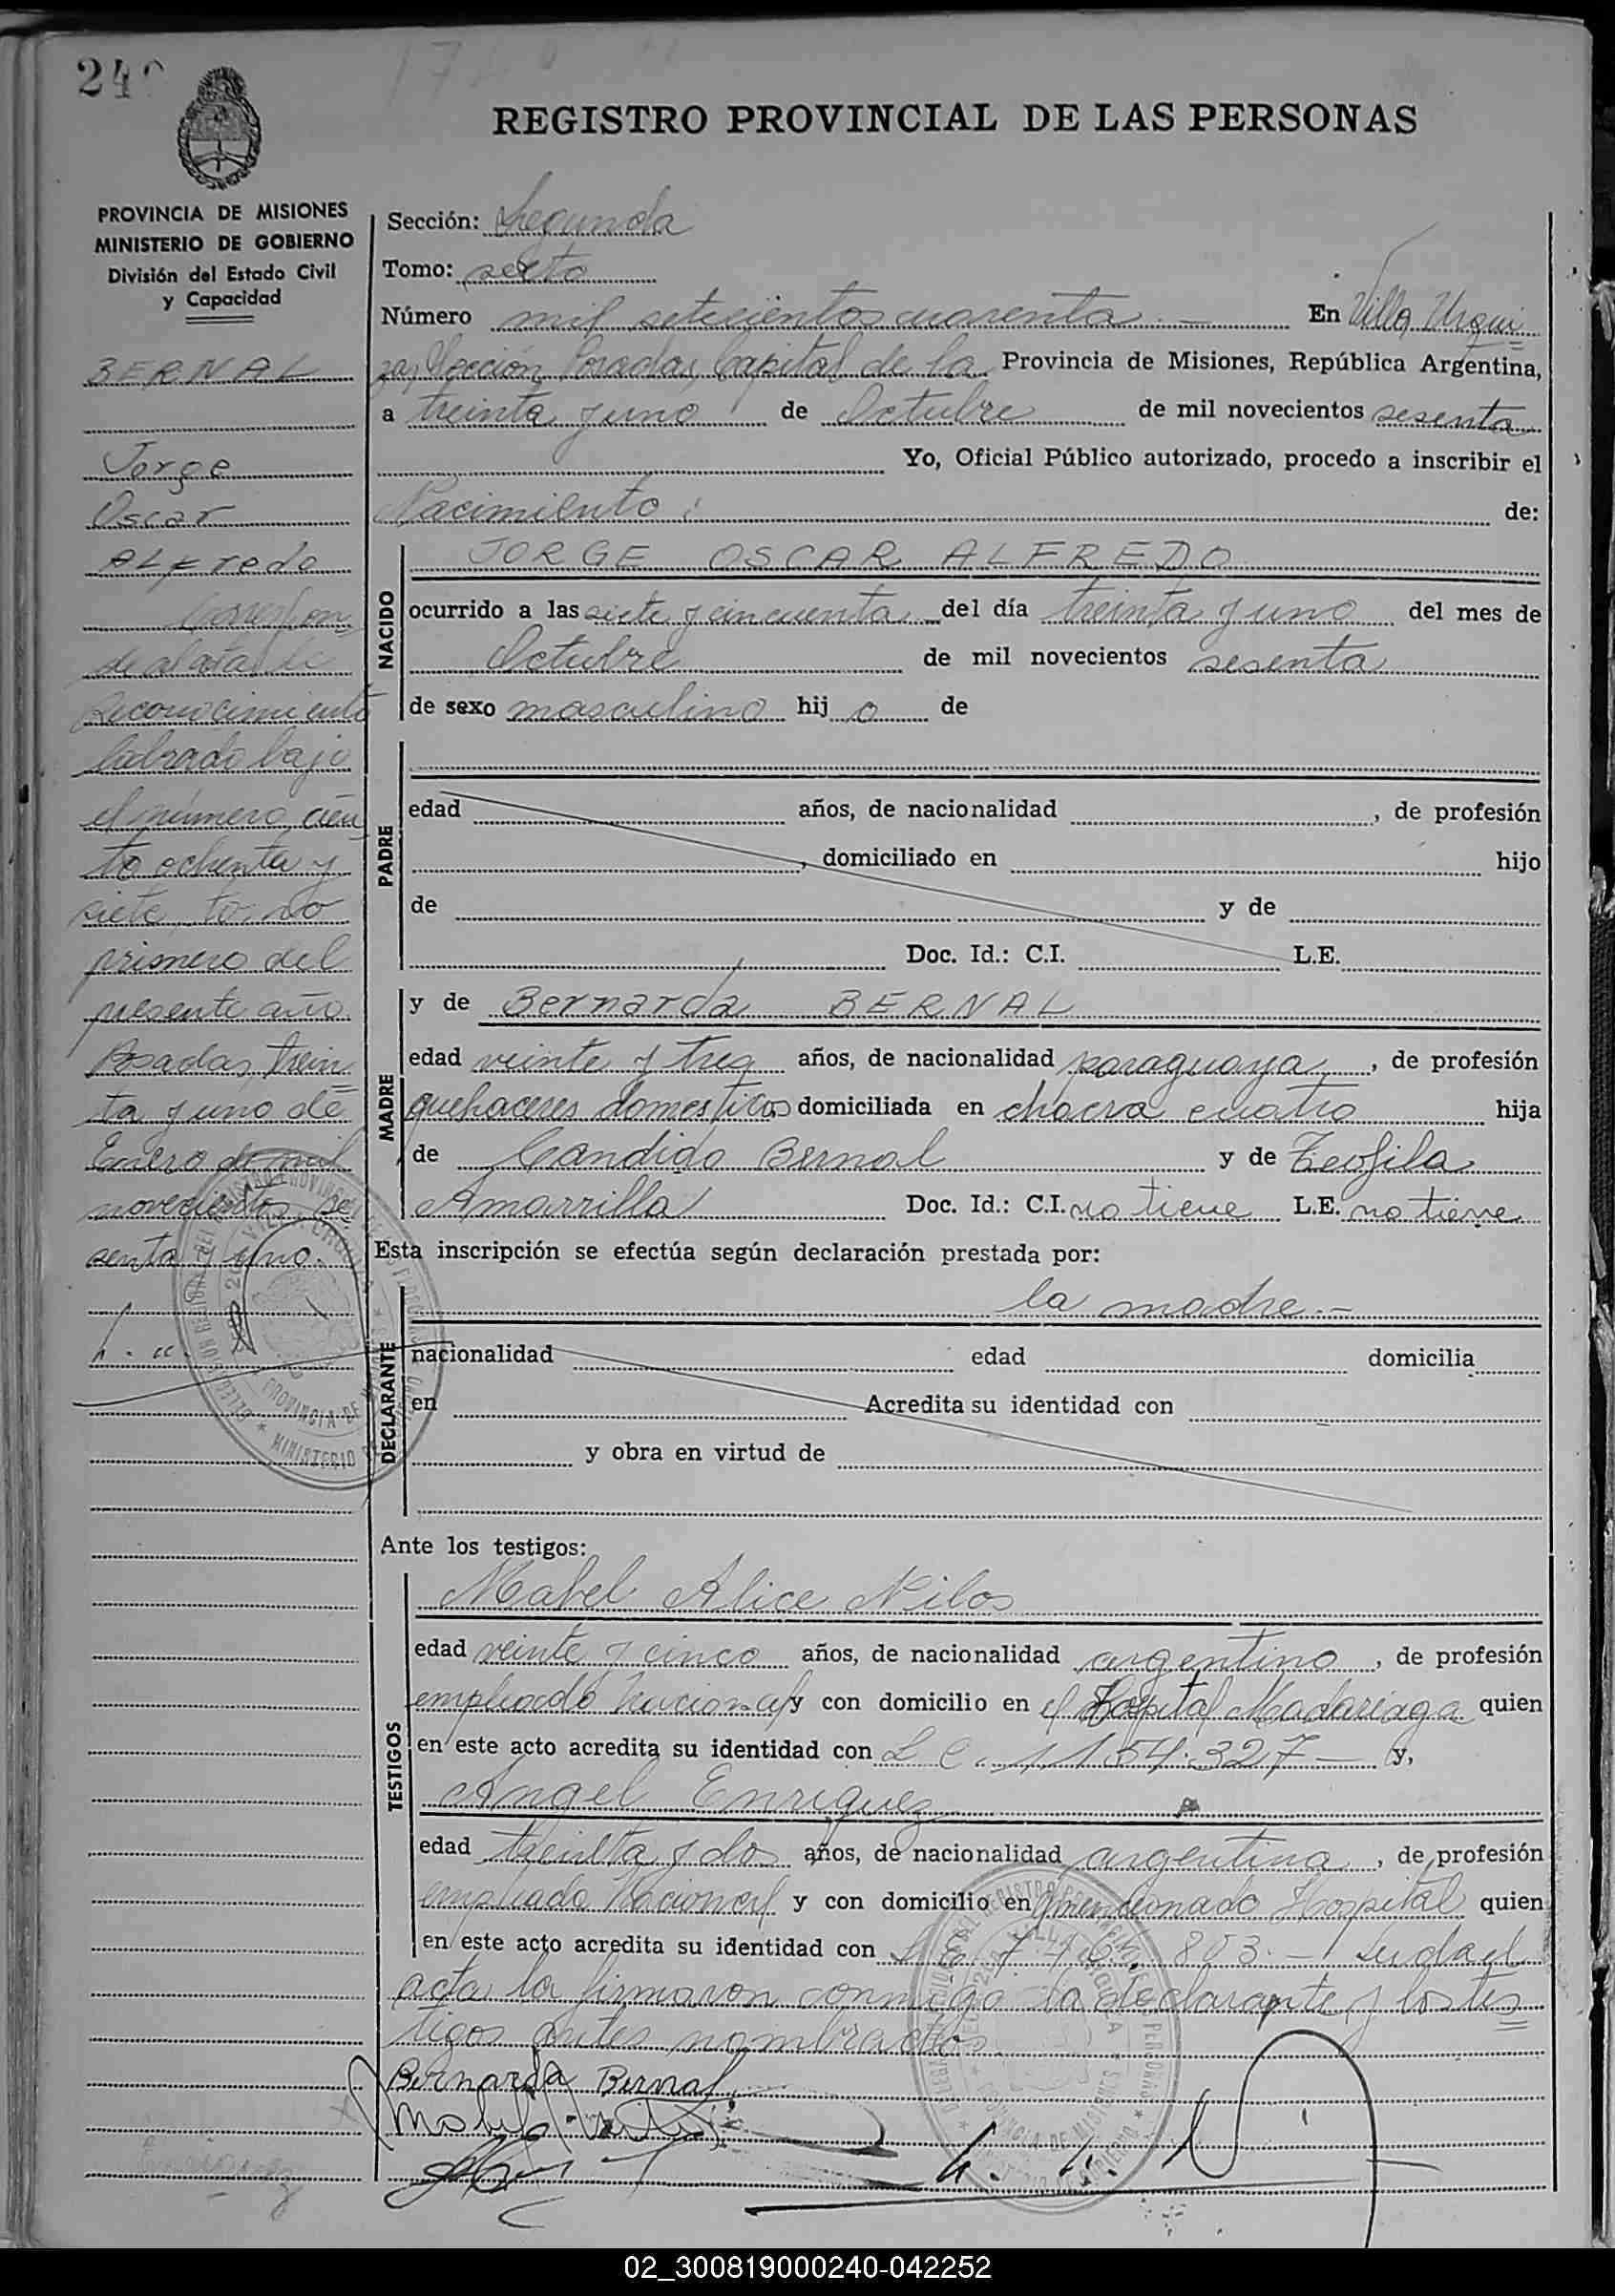 REGISTRO PROVINCIAL DE LAS PERSONAS
PROVINCIA DE MISIONES
MINISTERIO DE GOBIERNO
División del Estado Civil
y Capacidad
BERNAL
Jorge
Oscar
ALFredo
Correspon
de al acta de
Reconocimiento
labrado bajo
el número cien
to ochenta y
siete, tomo
primero del
presente año.
Posadas, trein
ta y uno de
Enero de mil
novecientos se
senta y uno.
Sección: Segunda
Tomo: sexto
Número mil setecientos cuarenta.— En Villa Urqui
za, Sección Posadas, Capital de la Provincia de Misiones, República Argentina,
a treinta y uno de Octubre de mil novecientos sesenta
Yo, Oficial Público autorizado, procedo a inscribir el
Nacimiento: de:
NACIDO
JORGE OSCAR ALFREDO
ocurrido a las siete y cincuenta del día treinta y uno del mes de
Octubre de mil novecientos sesenta
de sexo masculino hij o de
PADRE
edad años, de nacionalidad , de profesión
, domiciliado en hijo
de y de
Doc. Id.: C.I. L.E.
MADRE
y de Bernarda BERNAL
edad veinte y tres años, de nacionalidad paraguaya, de profesión
quehaceres domesticos domiciliada en chacra cuatro hija
de Candido Bernal y de Teofila
Amarrilla Doc. Id.: C.I. no tiene L.E. no tiene
Esta inscripción se efectúa según declaración prestada por:
DECLARANTE
la madre.—
nacionalidad edad domicilia
en Acredita su identidad con
y obra en virtud de
Ante los testigos:
TESTIGOS
Mabel Alice Nilos
edad veinte y cinco años, de nacionalidad argentino, de profesión
empleado nacional y con domicilio en el Hospital Madariaga quien
en este acto acredita su identidad con L C. 1154.327— y,
Angel Enriquez
edad treinta y dos años, de nacionalidad argentina, de profesión
empleado Nacional y con domicilio en mencionado Hospital quien
en este acto acredita su identidad con 803.—
acta la firmaron conmigo la declarante y los tes
tigos antes nombrados.
Bernarda Bernal
02_300819000240-042252